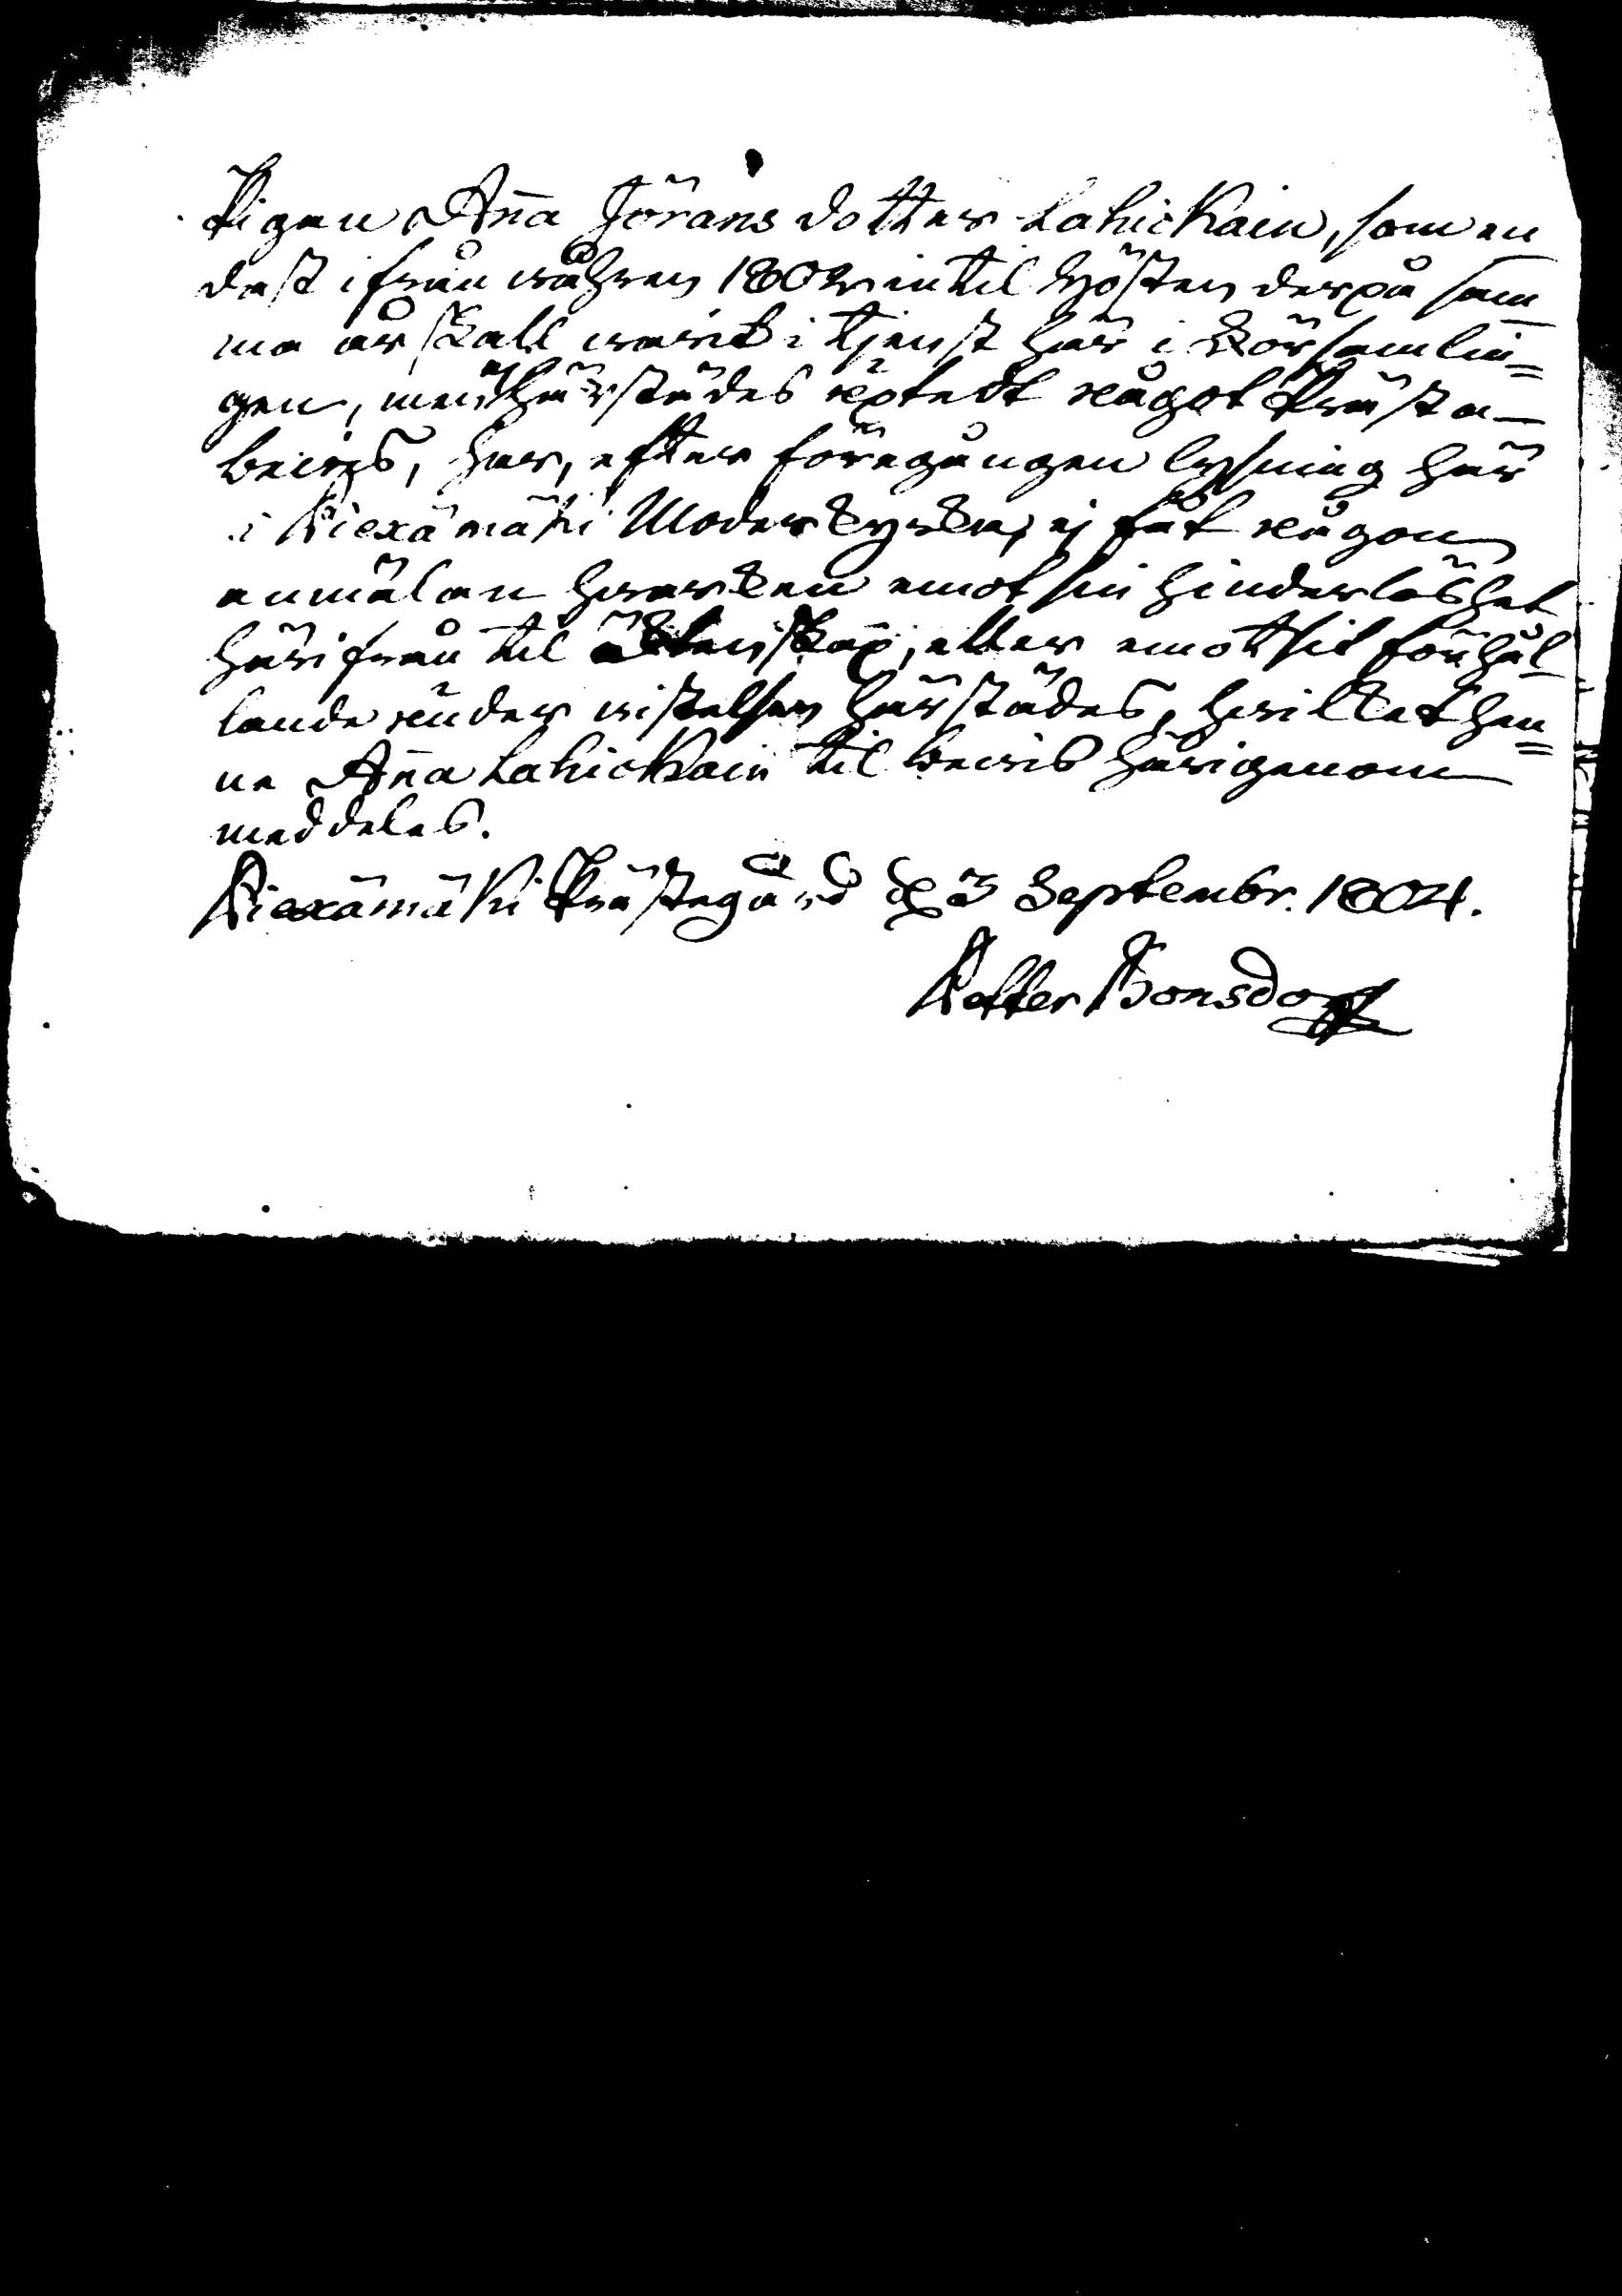 Pigan Aña Jörans dotter Lahickain, som en
dast ifrån wåhren 1802 intil hösten derpå sam̄
ma år skall warit i tjenst här i Församlin=
gen, men ej härstädes uptedt något Prästa-
bewis, har, efter föregången lysning här
i Piexämäki Moderkyrka, ej fåt någon
anmälan hwarken emot sin hinderlöshet
härifrån til ächtenskap, eller emot sit förhål-
lande under wistelsen härstädes, hwilket hen=
ne Aña Lahickain til bewis härigenom
meddelas.
Piexämäki Prästegård d. 3 Septembr. 1804.
Petter Bonsdorff